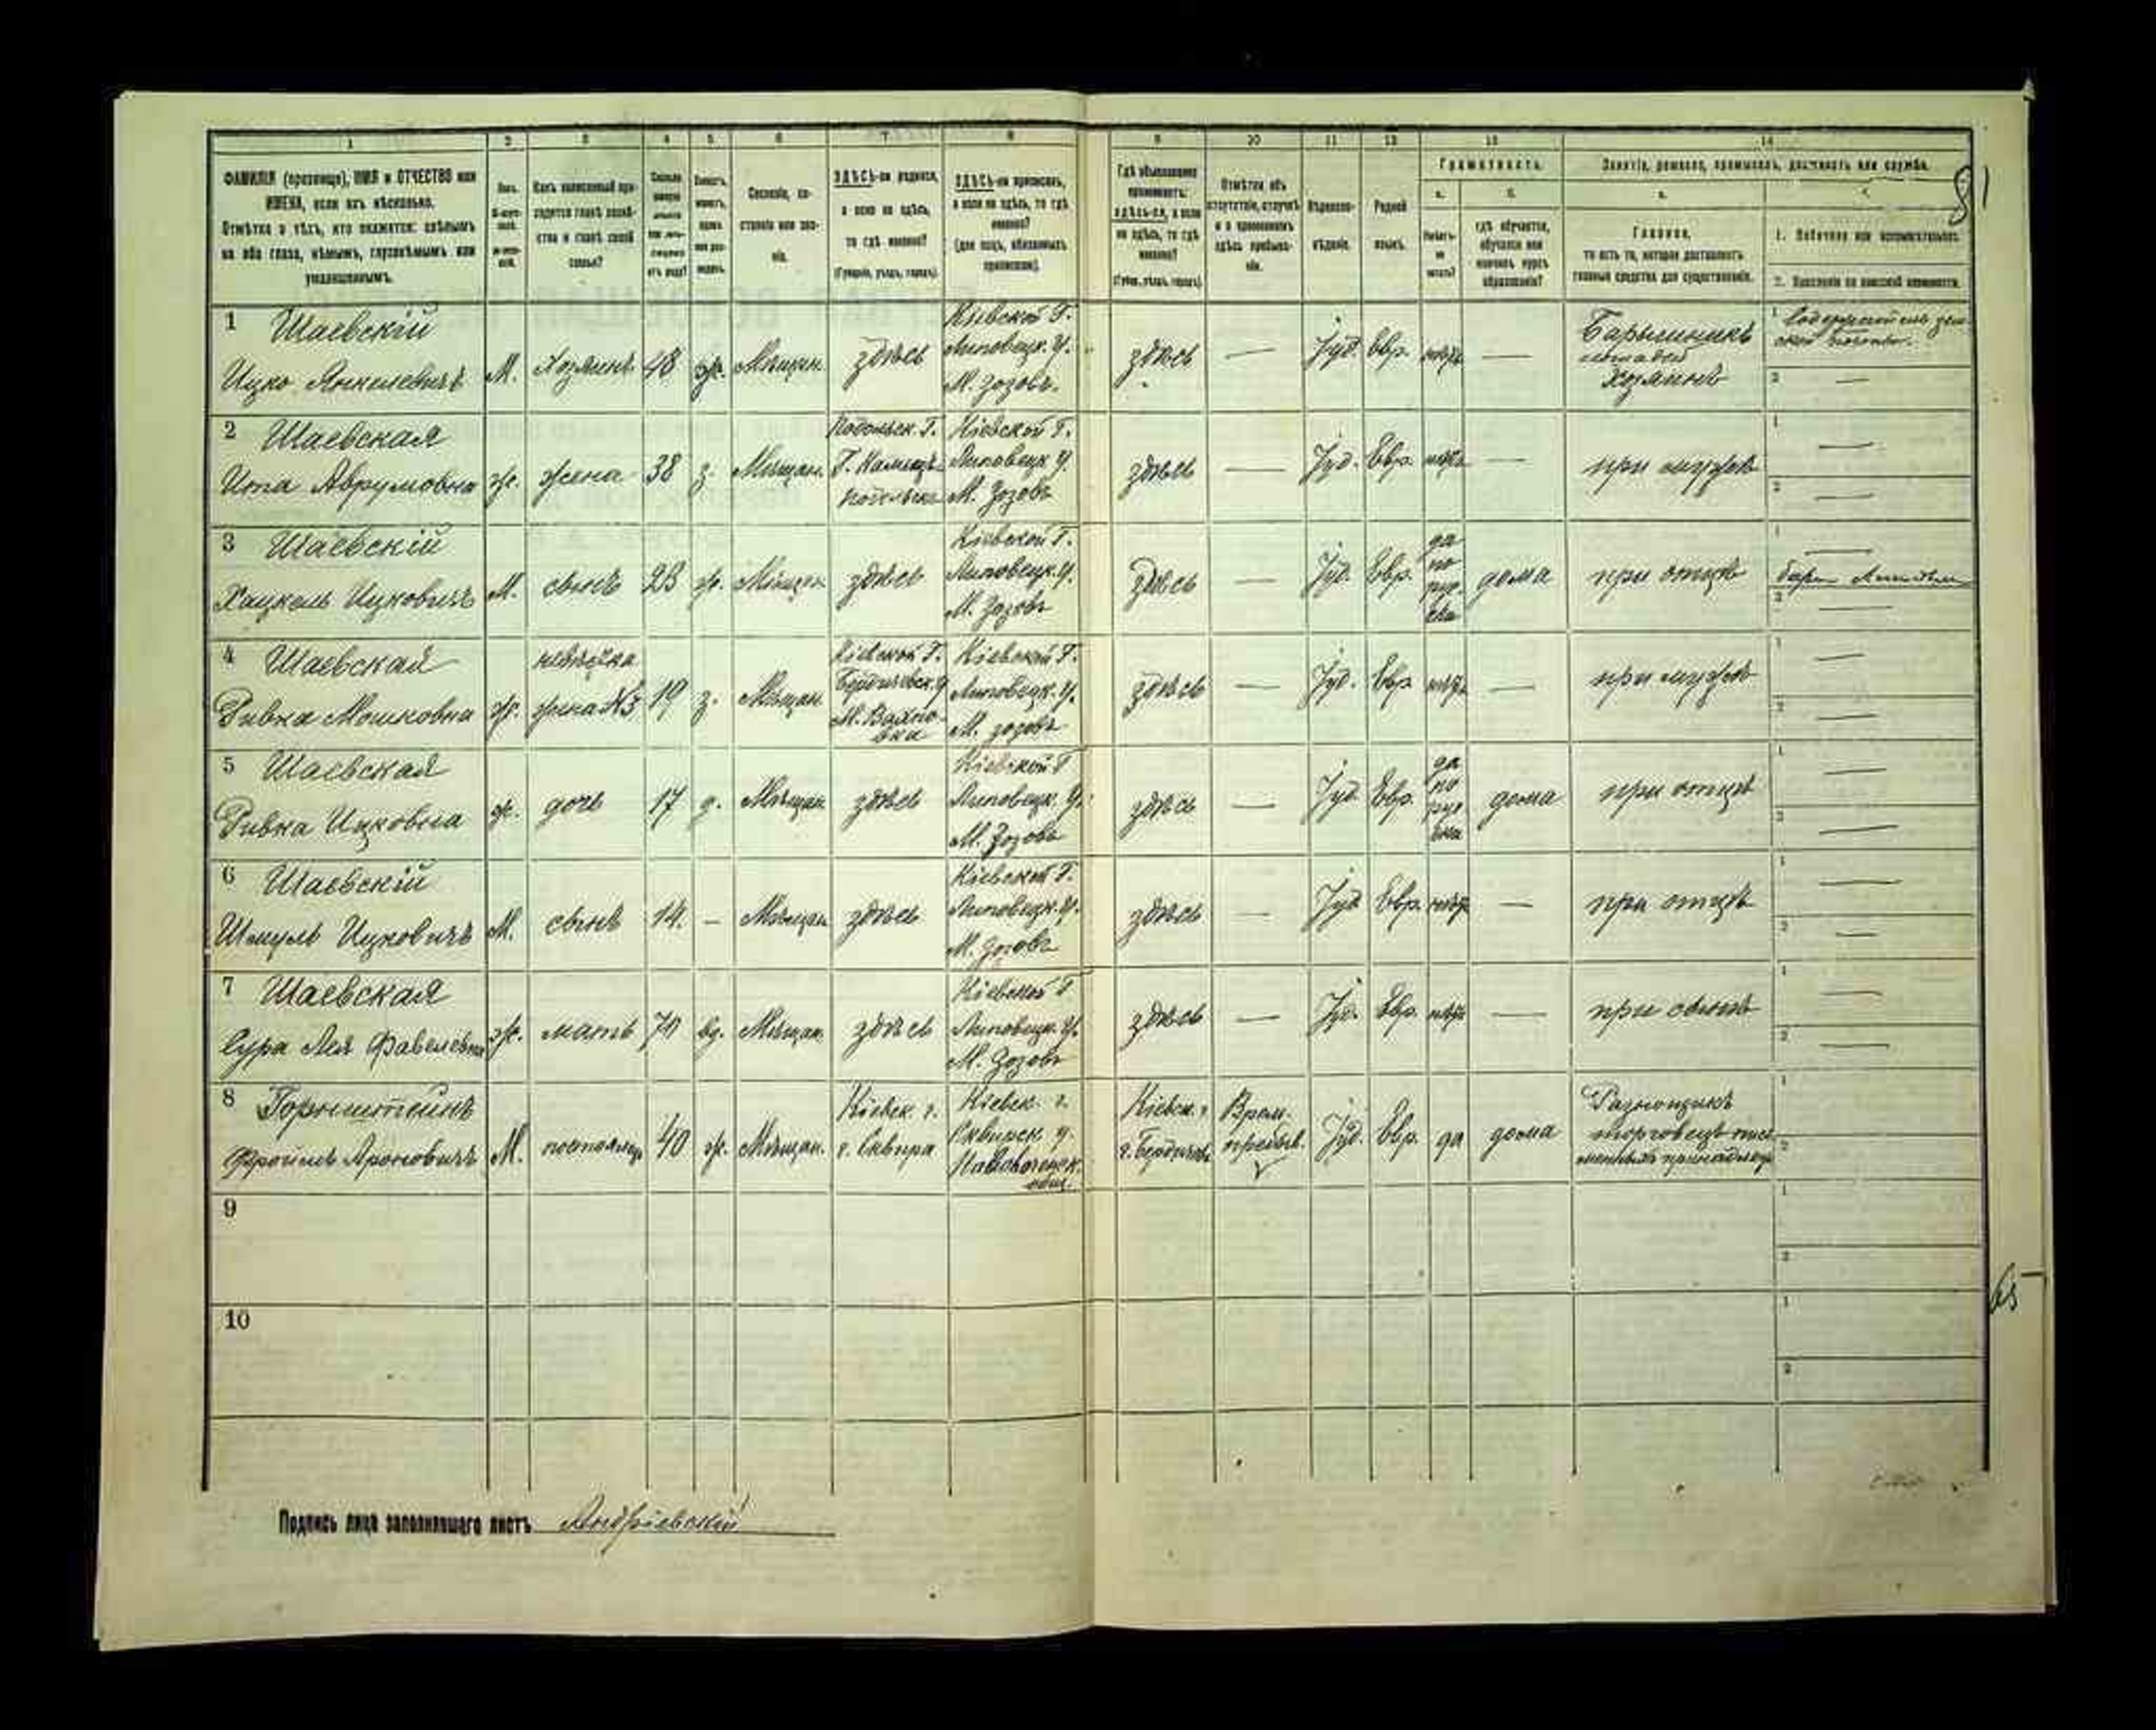 1
2
3
4
5
6
7
8
9
10
11
12
13
14
ФАМИЛІЯ (прозвище), ИМЯ и ОТЧЕСТВО или
ИМЕНА, если ихъ нѣсколько.
Отмѣтка о тѣхъ, кто окажется: слѣпымъ
на оба глаза, нѣмымъ, глухонѣмымъ или
умалишеннымъ.
Какъ записанный при-
ходится главѣ хозяй-
ства и главѣ своей
семьи?
Сословіе, со-
стояніе или зва-
ніе.
ЗДѢСЬ-ли родился,
а если не здѣсь,
то гдѣ именно?
(Губернія, уѣздъ, городъ).
ЗДѢСЬ-ли приписанъ,
а если не здѣсь, то гдѣ
именно?
(для лицъ, обязанныхъ
припискою).
Гдѣ обыкновенно
проживаетъ:
здѣсь-ли, а если
не здѣсь, то гдѣ
именно?
(Губер., уѣздъ, городъ).
Отмѣтка объ
отсутствіи, отлучкѣ
и о временномъ
здѣсь пребыва-
ніи.
Вѣроиспо-
вѣданіе.
Родной
языкъ.
Грамотность.
а.
б.
Умѣетъ-
ли
читать?
гдѣ обучается,
обучался или
кончилъ курсъ
образованія?
Занятіе, ремесло, промыселъ, должность или служба.
а.
Главное,
то есть то, которое доставляетъ
главныя средства для существованія.
1. Побочное или вспомогательное.
2. Положеніе по воинской повинности.
81
1 Шаевскій
Ицко Янкелевичъ
М.
Хозяинъ
48
ж.
Мѣщан.
здѣсь
Кіевской Г.
Липовецк. У.
М. Зозовъ.
здѣсь
—
Іуд.
Евр.
нѣтъ
—
Барышникъ
лошадей
Хозяинъ
1
2 —
2 Шаевская
Ита Аврумовна
ж.
жена
38
з.
Мѣщан.
Подольск. Г.
Г. Камец.
Подольск.
Кіевской Г.
Липовецк У.
М. Зозовъ
здѣсь
—
Іуд.
Евр.
нѣтъ
—
при мужѣ
1 —
2 —
3 Шаевскій
Хацкель Ицковичъ
М.
сынъ
23
ж.
Мѣщан.
здѣсь
Кіевской Г.
Липовецк. У.
М. Зозовъ
здѣсь
—
Іуд.
Евр.
да
по
рус-
ски
дома
при отцѣ
1 —
2 —
4 Шаевская
Ривка Мошковна
ж.
невѣстка
жена №3
19
з.
Мѣщан.
Кіевской Г.
Бердичевск. У
М. Вахно-
вка
Кіевской Г.
Липовецк. У.
М. Зозовъ
здѣсь
—
Іуд.
Евр.
нѣтъ
—
при мужѣ
1 —
2 —
5 Шаевская
Ривка Ицковна
ж.
дочь
17
д.
Мѣщан.
здѣсь
Кіевской Г
Липовецк. У.
М. Зозовъ
здѣсь
—
Іуд.
Евр.
да
по
рус
ски
дома
при отцѣ
1 —
2 —
6 Шаевскій
Шмуль Ицковичъ
М.
сынъ
14.
—
Мѣщан.
здѣсь
Кіевской Г.
Липовецк. У.
М. Зозовъ
здѣсь
—
Іуд.
Евр.
нѣтъ
—
при отцѣ
1 —
2 —
7 Шаевская
Сура Лея Фавелевна
ж.
мать
70
вд.
Мѣщан.
здѣсь
Кіевской Г
Липовецк. У.
М. Зозовъ
здѣсь
—
Іуд.
Евр.
нѣтъ
—
при сынѣ
1 —
2 —
8 Горнштейнъ
Фроимъ Ароновичъ
М.
постоялец
40
ж.
Мѣщан.
Кіевск. г.
г. Сквира
Кіевск. г.
Сквирск у.
общ.
Кіевск. г.
г. Бердичевъ
Врем.
пребыв.
Іуд.
Евр.
да
дома
Разнощикъ
торговецъ пись
менныхъ принадлеж
1
2
9
1
2
10
1
2
65
Подпись лица заполнившаго листъ Андріевскій